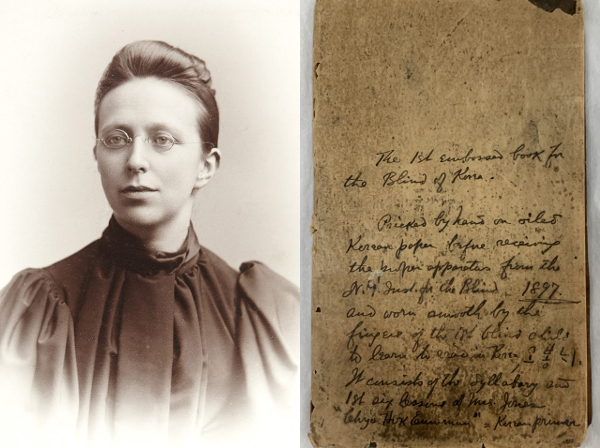 The 1st embossed book for
the Blind of Korea.
Pricked by hand on oiled
Korean paper before receiving
the proper apparatus from the
N.Y. Inst. for the Blind - 1897.
and worn smooth by the
fingers of the 1st blind child
to learn to read in Korea
It consists of the Syllabary and
1st six lessons of Mrs Jones
Korean primer